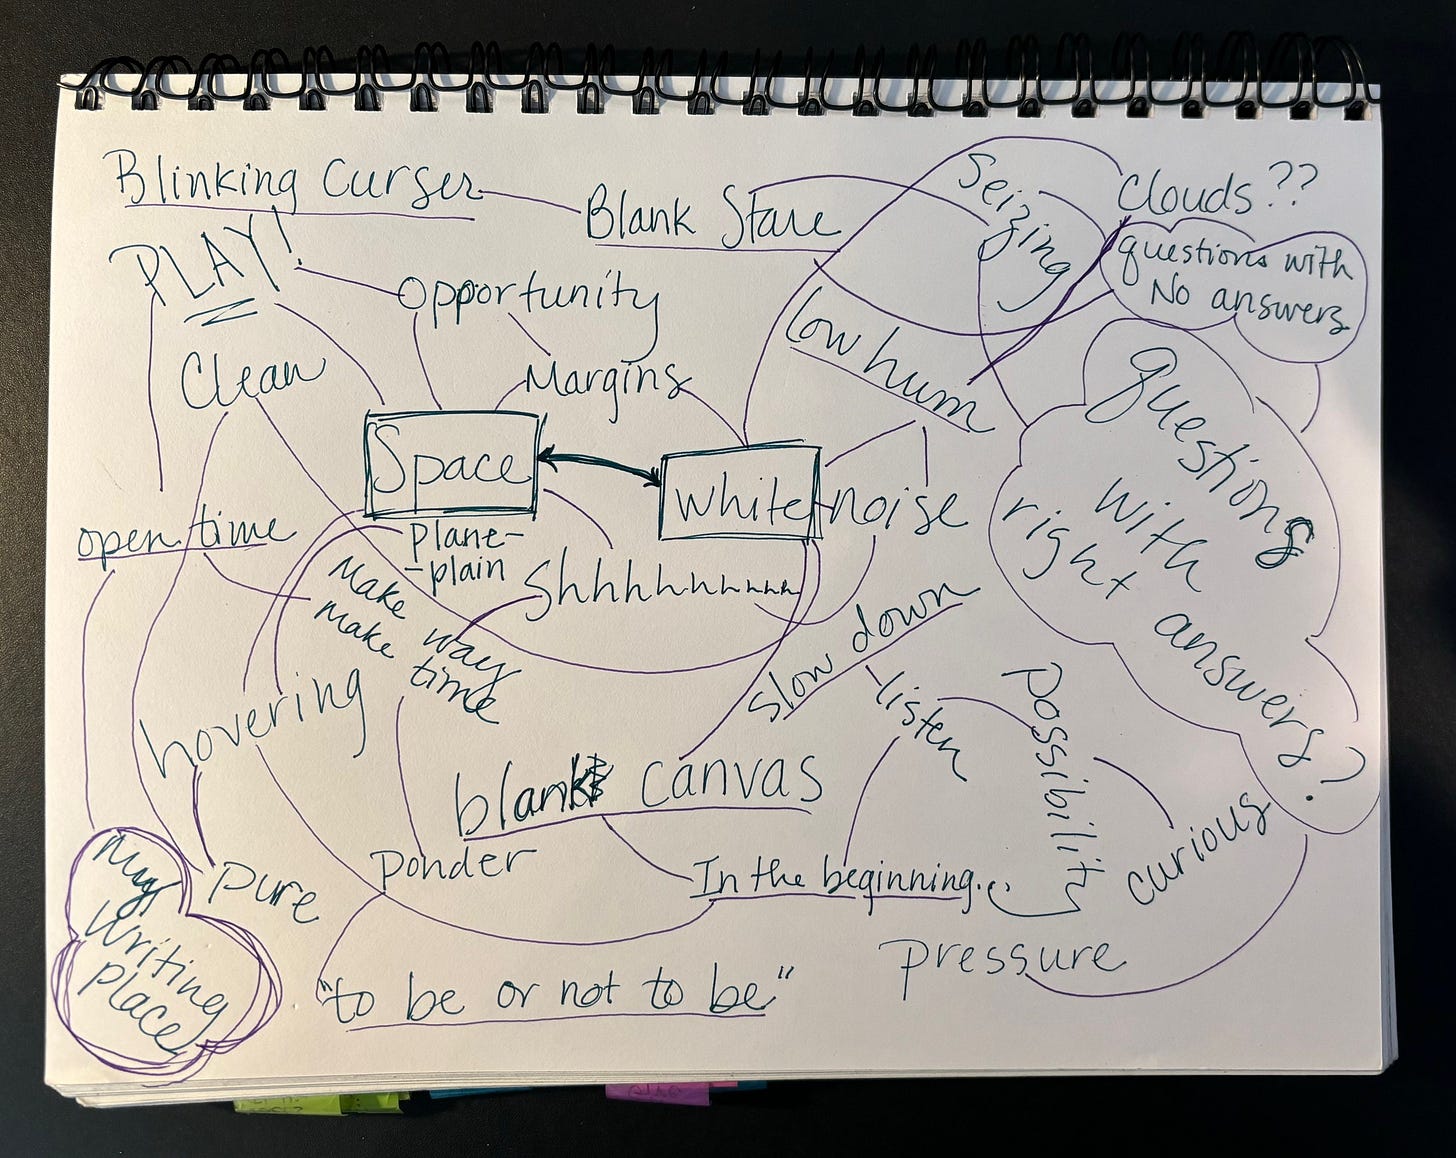 Blinking Curser
Blank Stare
Seizing
Clouds??
questions with
No answers
PLAY!
Opportunity
low hum
Clean
Margins
Questions
with
right answers?
Space
white
noise
open time
plane-
-plain
Shhhhhhhhh
Make way
make time
slow down
listen
possibility
hovering
blank canvas
curious
ponder
In the beginning...
pure
My
Writing
place
pressure
"to be or not to be"